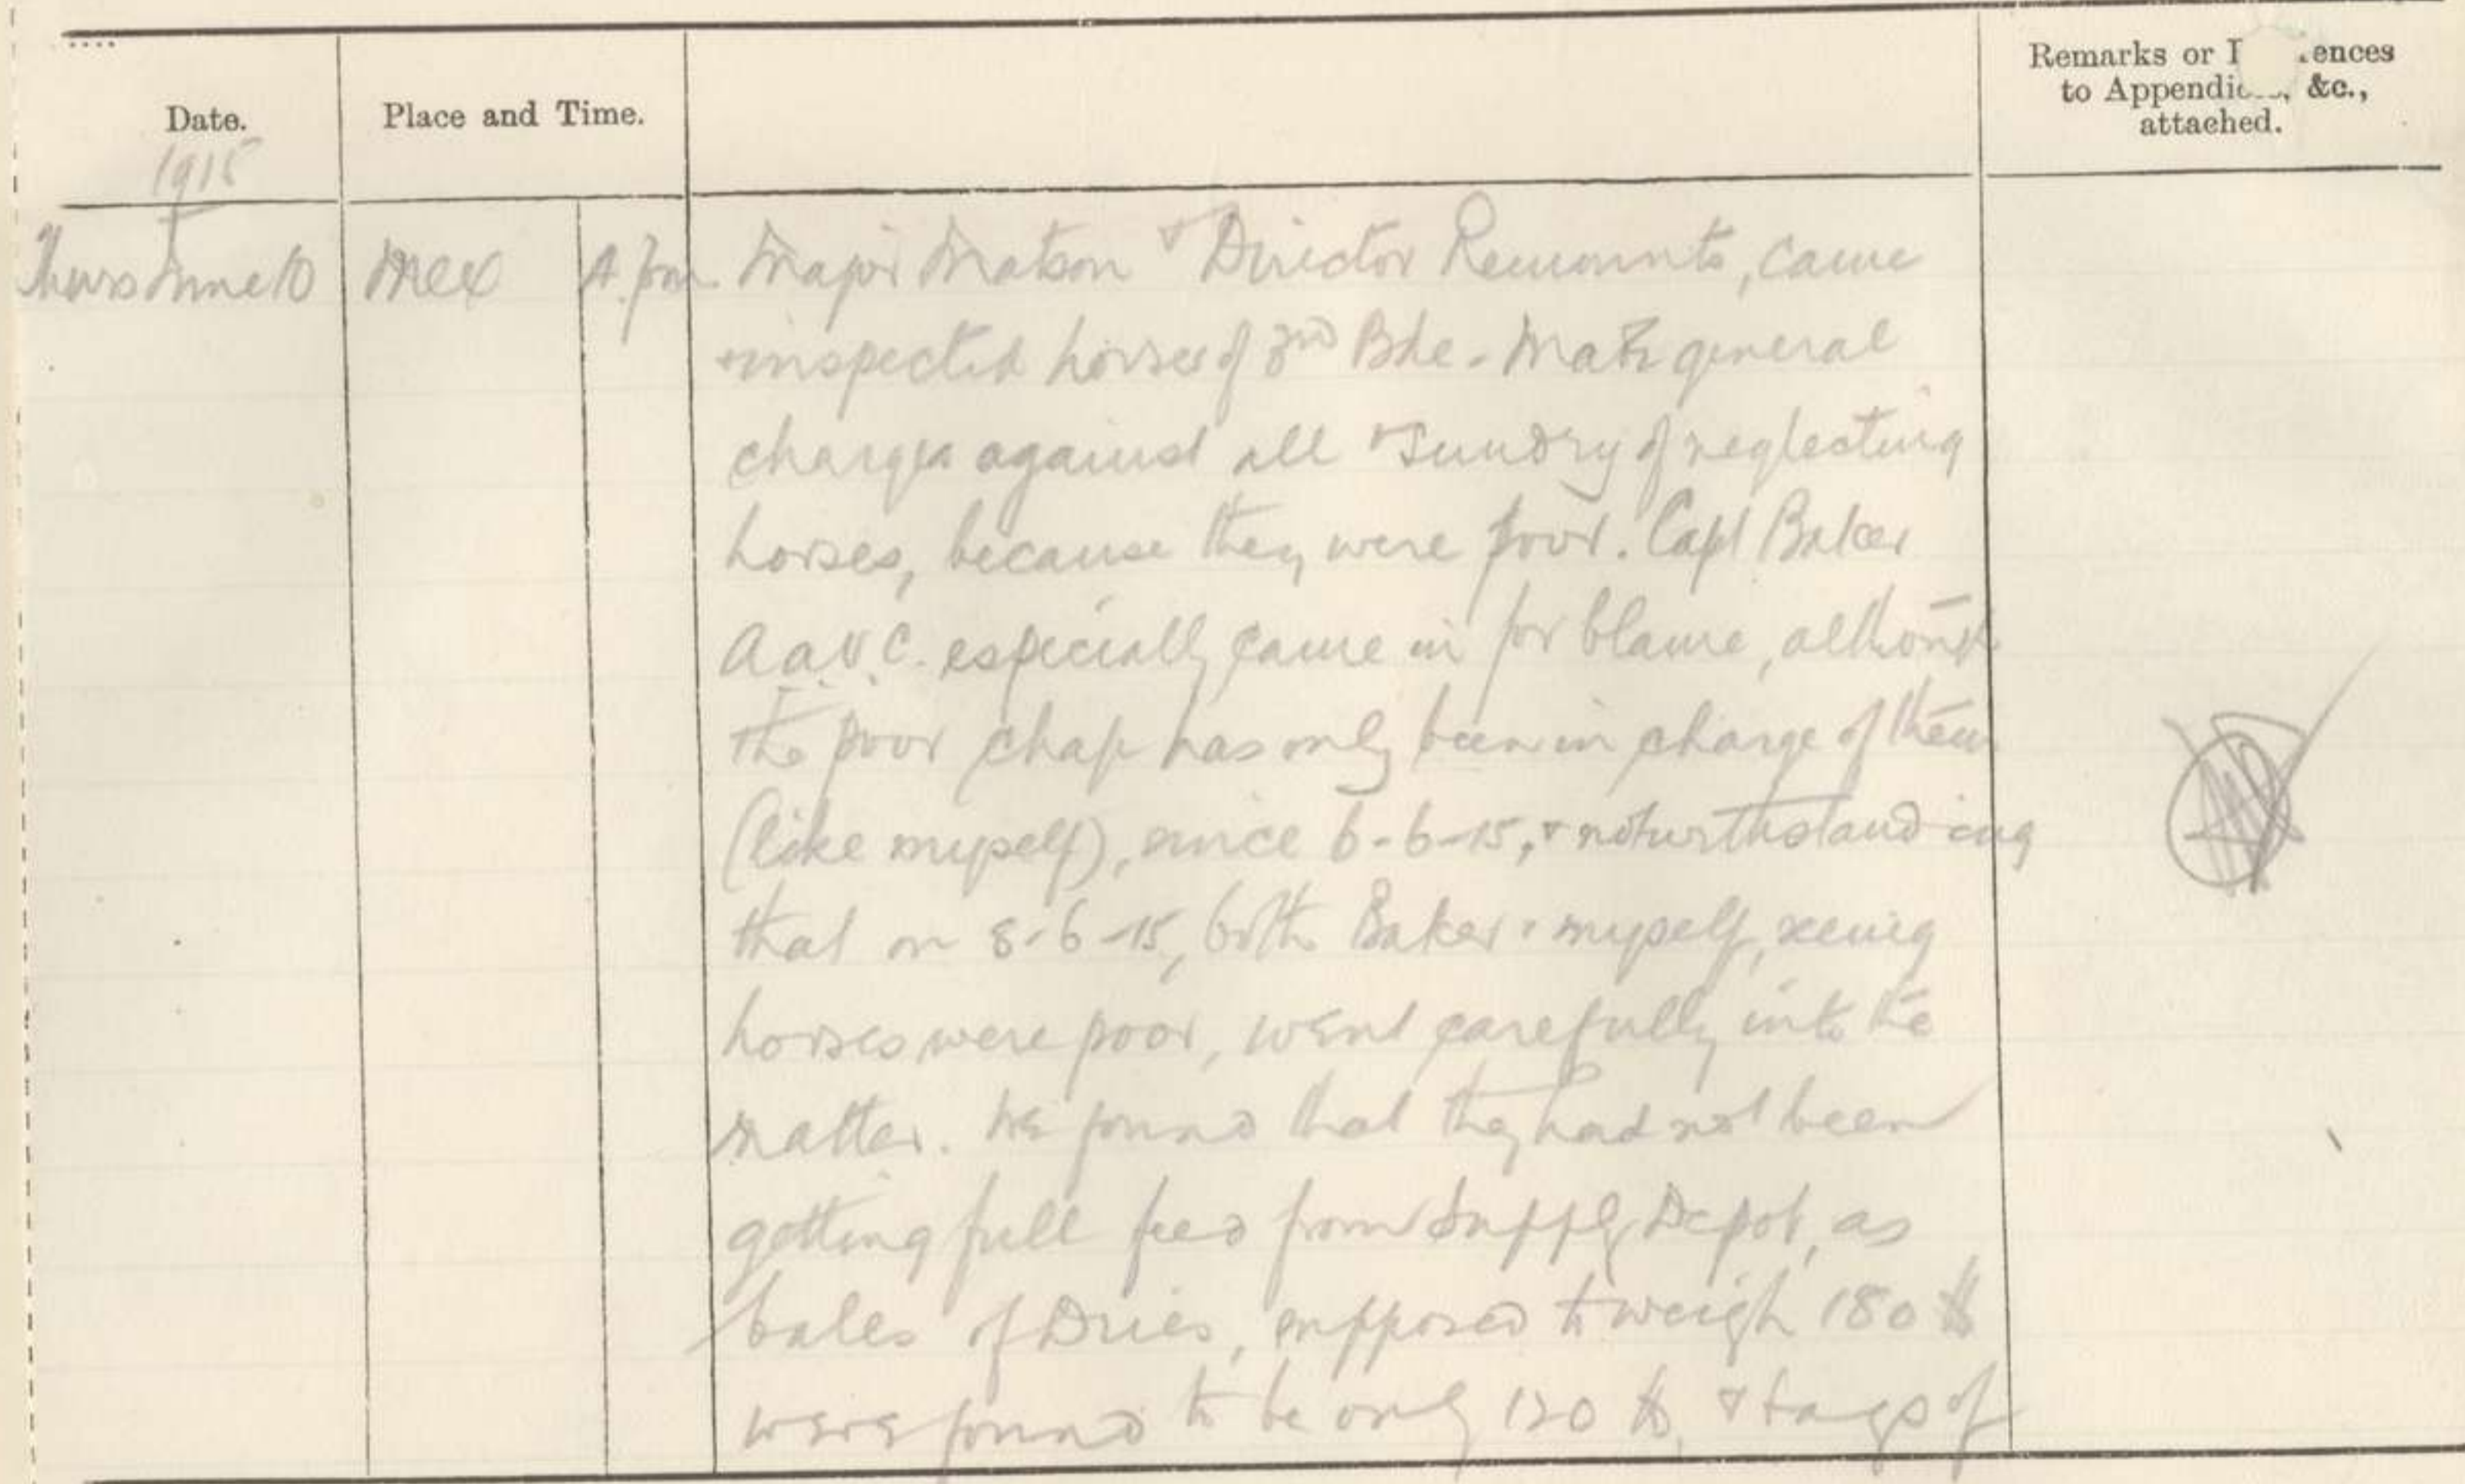 Date.
Place and Time.
Remarks or ences
to Appendic &c.,
attached.
1915
Thurs June 10
Mex
4. pm
Major Matson & Director Remounts, came
& inspected horses of 3rd Bde. Made general
charges against all & sundry of neglecting
horses, because they were poor. Capt Baker
A.A.V.C. especially came in for blame, altho'
the poor chap has only been in charge of them
(like myself), since 6-6-15, & notwithstanding
that on 8-6-15, both Baker & myself, seeing
horses were poor, went carefully into the
matter. We found that they had not been
getting full feed from Supply Depot, as
bales of Dries, supposed to weigh 180 lb
were found to be only 120 lb, & bags of